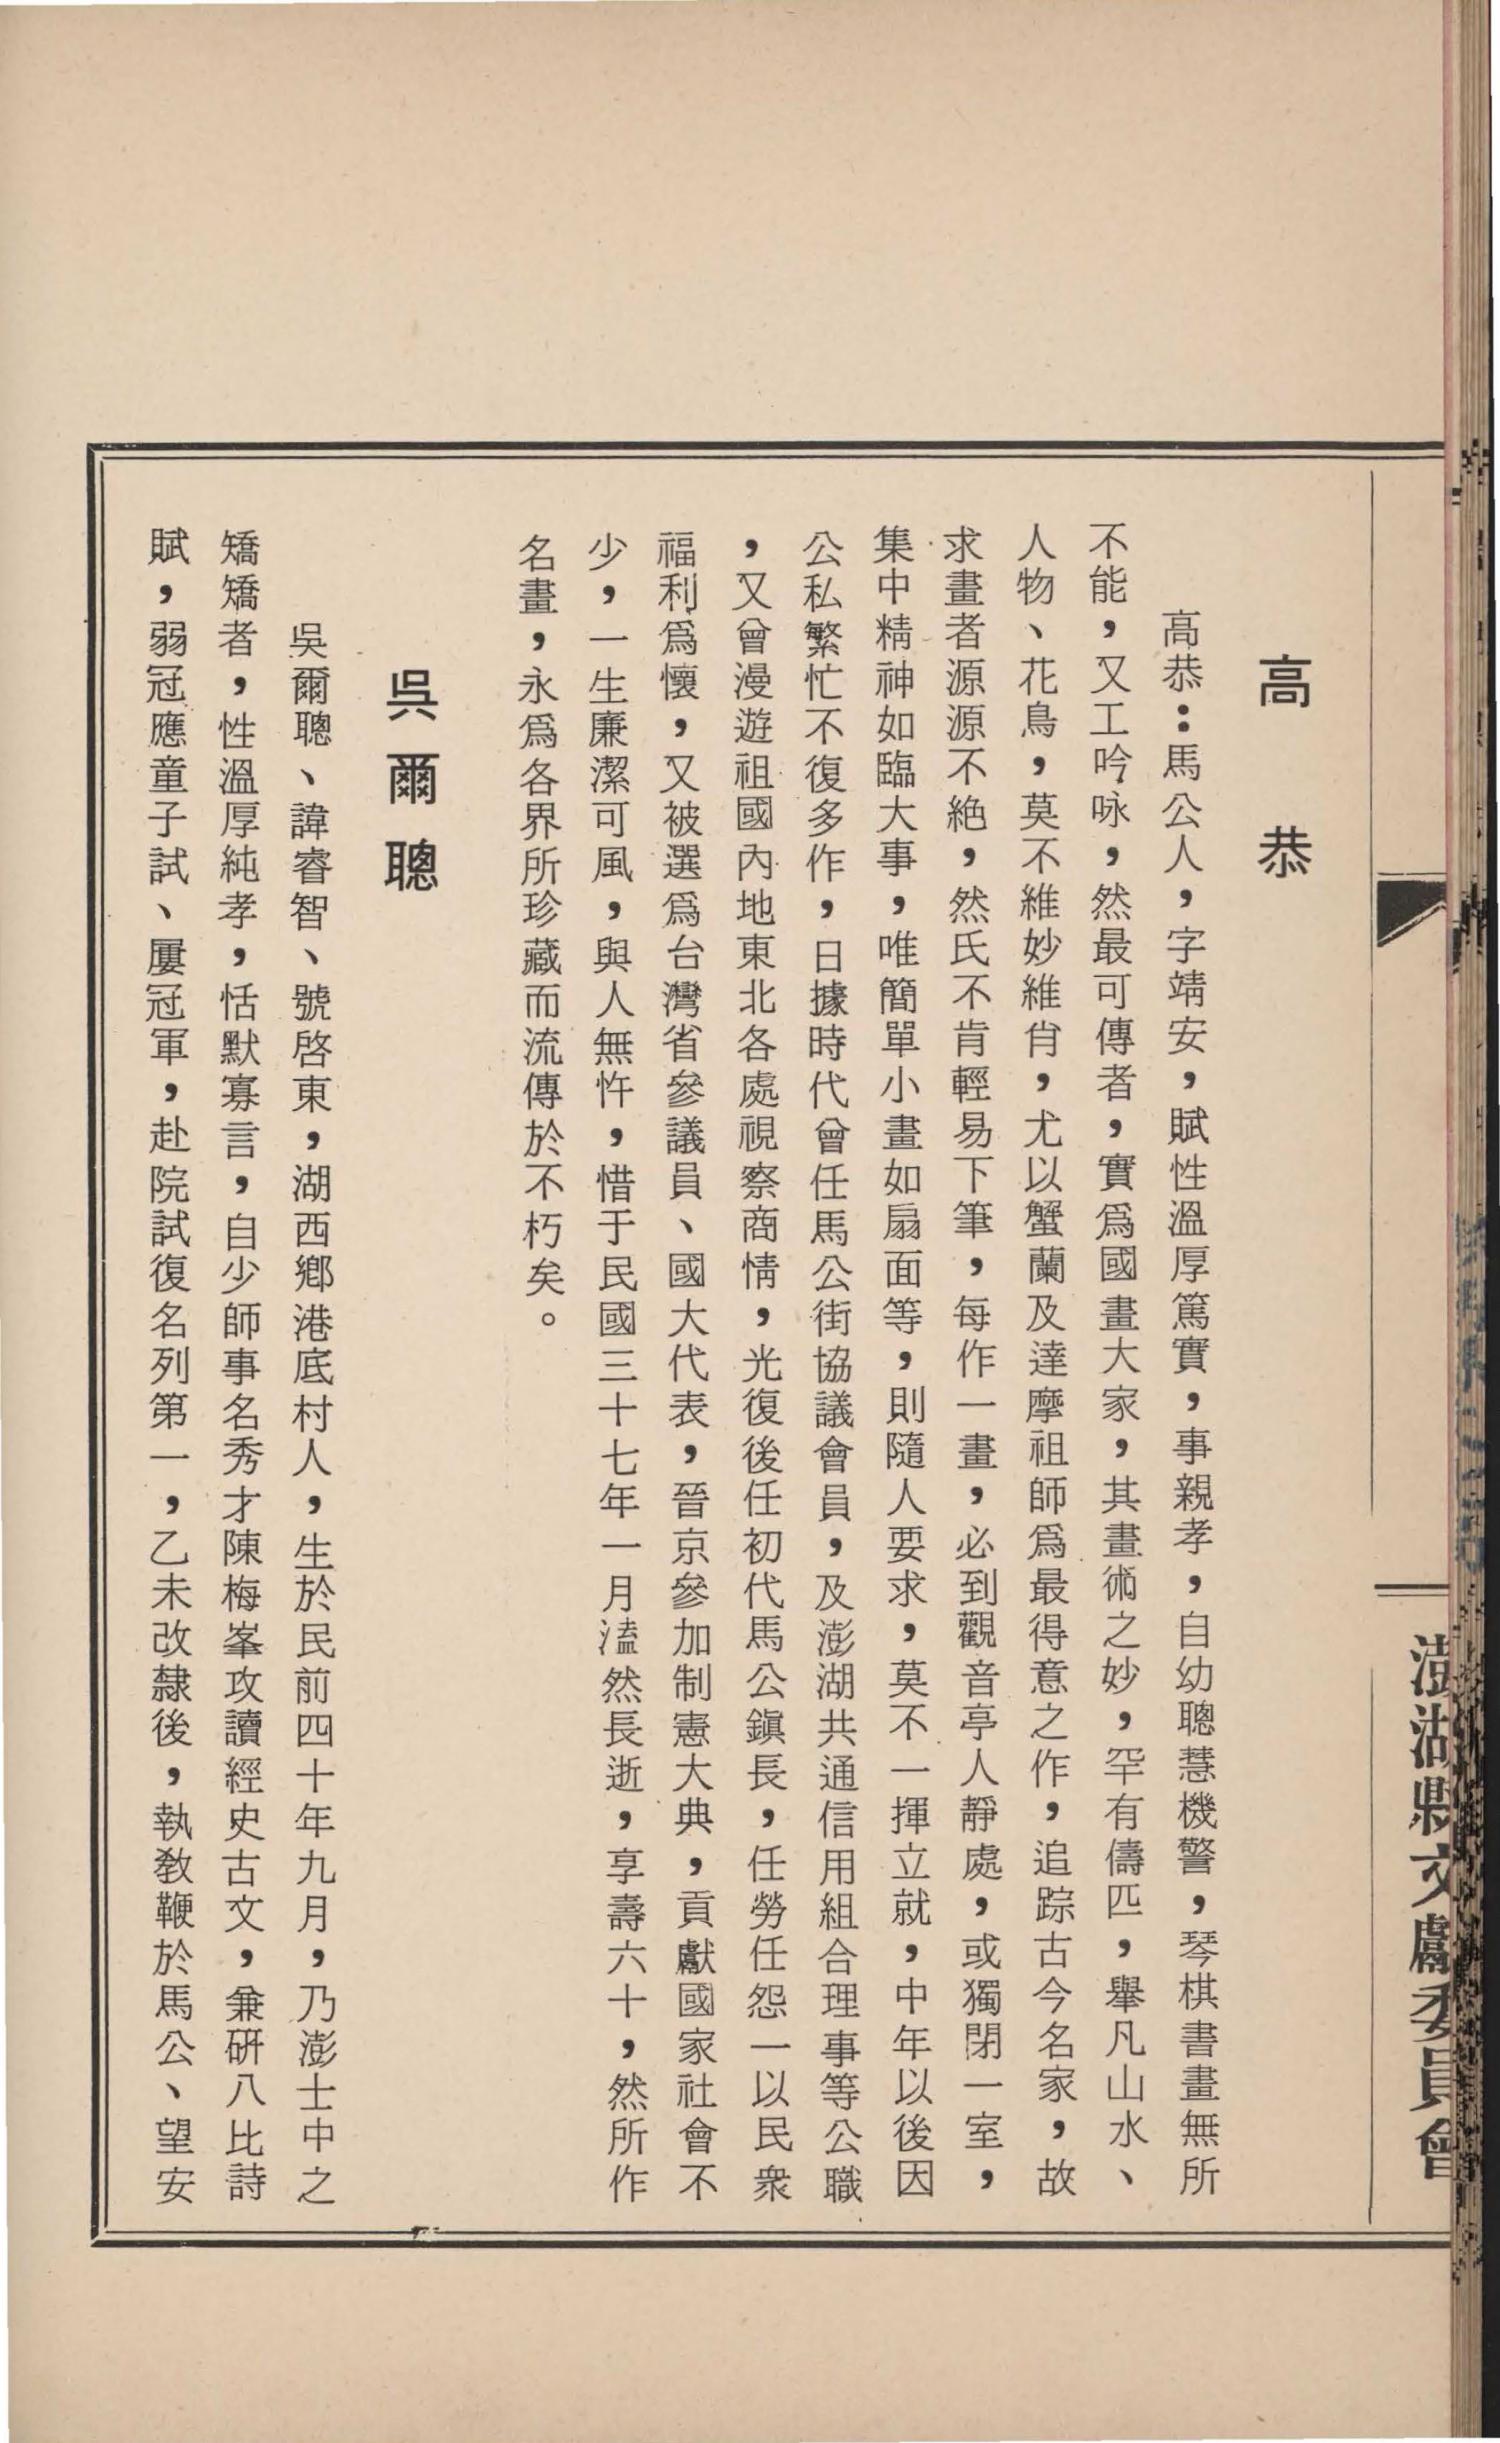 澎湖縣文獻委員會
高恭
高恭：馬公人，字靖安，賦性溫厚篤實，事親孝，自幼聰慧機警，琴棋書畫無所
不能，又工吟咏，然最可傳者，實爲國畫大家，其畫術之妙，罕有儔匹，舉凡山水、
人物、花鳥，莫不維妙維肖，尤以蟹蘭及達摩祖師爲最得意之作，追踪古今名家，故
求畫者源源不絶，然氏不肯輕易下筆，每作一畫，必到觀音亭人靜處，或獨閉一室，
集中精神如臨大事，唯簡單小畫如扇面等，則隨人要求，莫不一揮立就，中年以後因
公私繁忙不復多作，日據時代曾任馬公街協議會員，及澎湖共通信用組合理事等公職
，又曾漫遊祖國內地東北各處視察商情，光復後任初代馬公鎭長，任勞任怨一以民衆
福利爲懷，又被選爲台灣省參議員、國大代表，晉京參加制憲大典，貢獻國家社會不
少，一生廉潔可風，與人無忤，惜于民國三十七年一月溘然長逝，享壽六十，然所作
名畫，永爲各界所珍藏而流傳於不朽矣。
吳爾聰
吳爾聰、諱睿智、號啓東，湖西鄉港底村人，生於民前四十年九月，乃澎士中之
矯矯者，性溫厚純孝，恬默寡言，自少師事名秀才陳梅峯攻讀經史古文，兼研八比詩
賦，弱冠應童子試、屢冠軍，赴院試復名列第一，乙未改隸後，執教鞭於馬公、望安